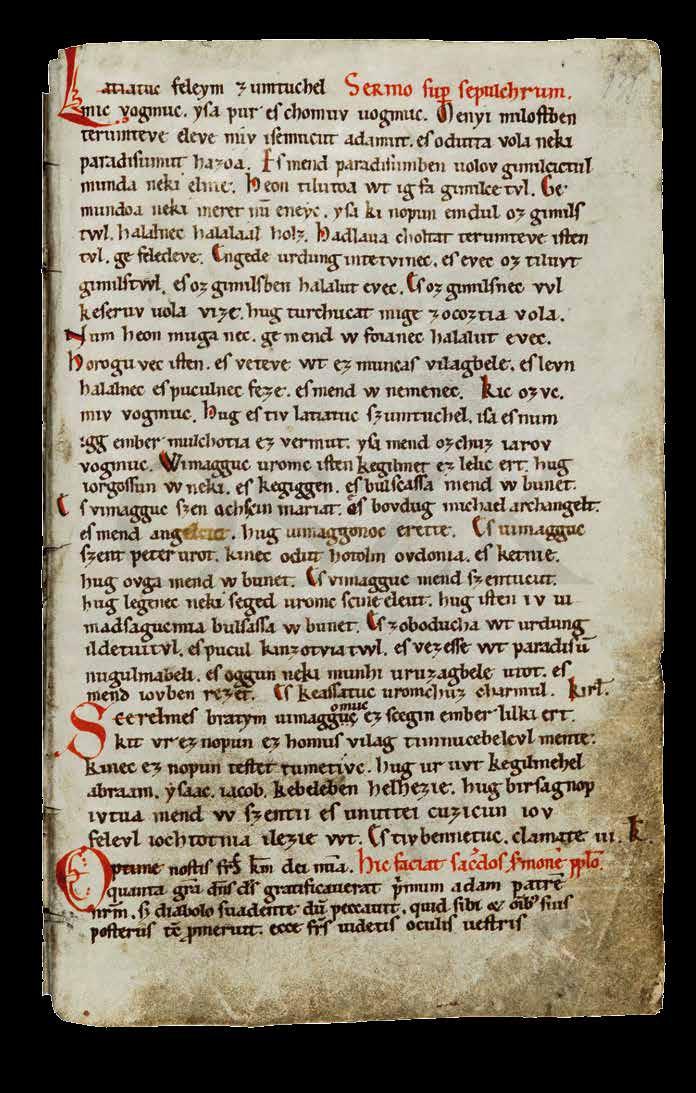 Latiatuc feleym zumtuchel Sermo sup sepulchrum.
mic vogmuc. ysa pur es chomuv uogmuc. Menyi milostben
terumteve eleve miv isemucut adamut. es odutta vola neki
paradisumut hazoa. Es mend paradisumben uolov gimilcictul
munda neki elnie. Heon tilutoa wt ig fa gimilce tvl. Ge
mundoa neki meret nū eneyc. ysa ki nopun emdul oz gimils
twl. halalnec halalaal holz. Hadlaua choltat terumteve isten
tvl. ge feledeve. Engede urdung intetvinec. es evec oz tiluvt
gimilstwl. es oz gimilsben halalut evec. Es oz gimilsnec vvl
keseruv uola vize. hug turchucat mige zocoztia vola.
Num heon muga nec. ge mend w foianec halalut evec.
Horogu vec isten. es veteve wt ez muncas vilagbele. es levn
halalnec es puculnec feze. es mend w nemenec. Kic ozvc.
miv vogmuc. Hug es tiv latiatuc szumtuchel. isa es num
igg ember mulchotia ez vermut. ysa mend ozchuz iarov
vogmuc. Wimagguc uromc isten kegilmet ez lelic ert. hug
iorgossun w neki. es kegiggen. es bulsassa mend w bunet.
Es vimagguc szen achscin mariat. es bovdug michael archangelt.
es mend angelcut. hug uimaggonoc erette. Es uimagguc
szent peter urot. kinec odut hotolm ovdonia. es ketnie.
hug ovga mend w bunet. Es vimagguc mend szentucut.
hug legenec neki seged uromc scine eleut. hug isten iv ui
madsagucmia bulsassa w bunet. Es zoboducha wt urdung
ildetuitvl. es pucul kinzotviatwl. es vezesse wt paradisū
nugulmabeli. es oggun neki munhi uruzagbele utot. es
mend iovben rezet. Es keassatuc uromchuz charmul. kirl.
Scerelmes bratym uimagguc omuc ez scegin ember lilki ert.
kit vr ez nopun ez homus vilag timnucebelevl mente.
kinec ez nopun testet tumetivc. hug ur uvt kegilmehel
abraam. ysaac. iacob. kebeleben helhezie. hug birsagnop
ivtua mend w szentii es unuttei cuzicun iov
felevl iochtotnia ilezie vvt. Es tivbennetuc. clamate iii. K.
Optime nostis frs km dei mia. Hic faciat sacdos smone pplo.
quanta gra dns ds gratificauerat primum adam patrē
nrm. s; diabolo suadente dū peccauit. quid sibi & oib; suis
posteris te pmeruit. ecce frs uidetis oculis uestris